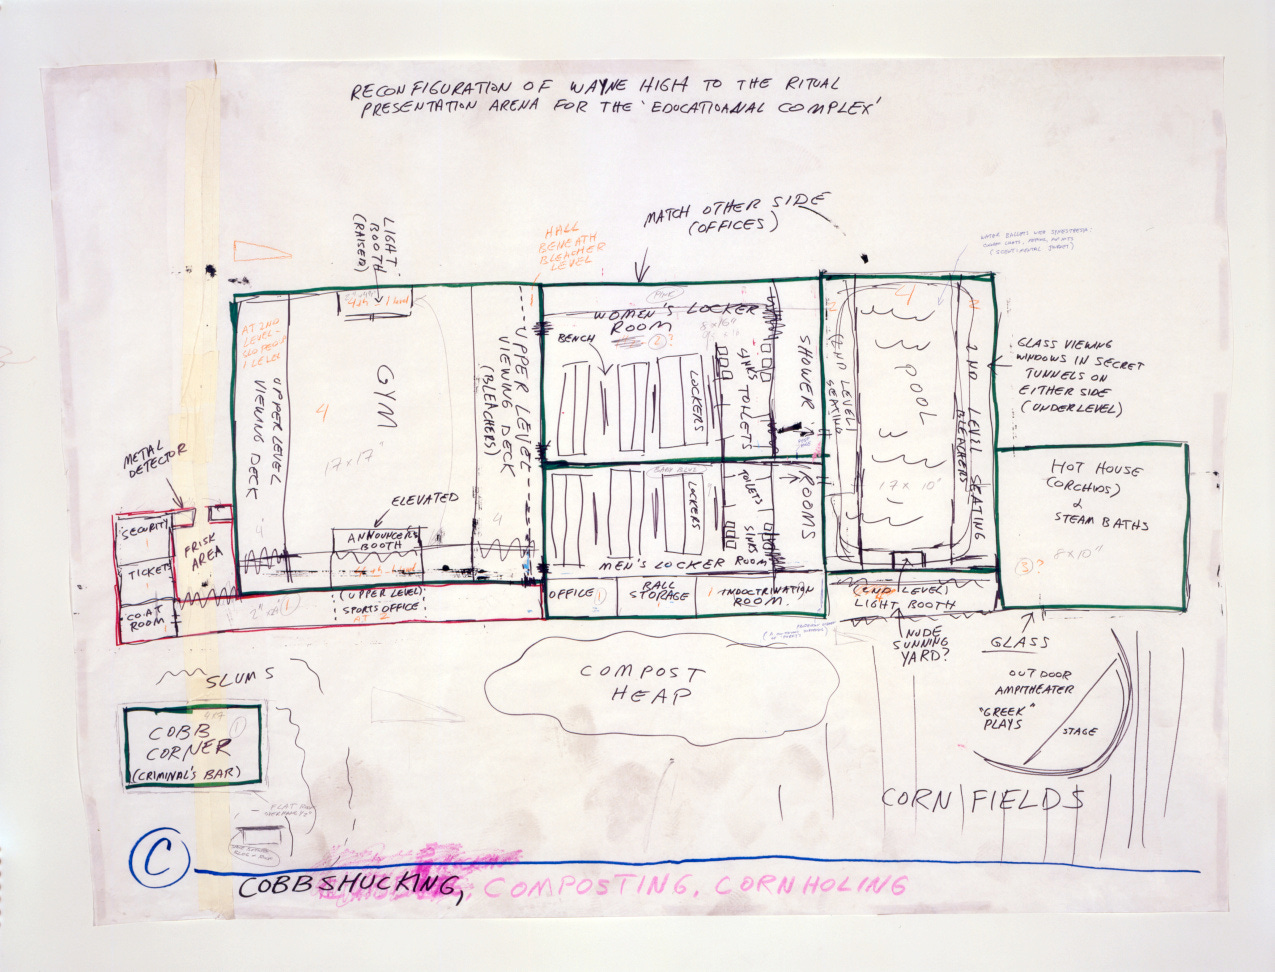 RECONFIGURATION OF WAYNE HIGH TO THE RITUAL
PRESENTATION ARENA FOR THE 'EDUCATIOANAL COMPLEX'
MATCH OTHER SIDE
(OFFICES)
LIGHT
BOOTH
(RAISED)
HALL
BENEATH
BLEACHER
LEVEL
1
AT 2ND
LEVEL-
UPPER LEVEL
VIEWING DECK
4
GYM
4
17 x 17"
UPPER LEVEL
VIEWING DECK
(BLEACHERS)
4
ELEVATED
ANNOUNCER'S
BOOTH
(UPPER LEVEL)
SPORTS OFFICE
AT 2
METAL
DETECTOR
SECURITY
1
TICKETS
COAT
ROOM
FRISK
AREA
1
PINK
WOMEN'S LOCKER
ROOM
2?
BENCH
LOCKERS
SINKS
TOILETS
SHOWER
ROOMS
LOCKERS
TOILETS
SINKS
MEN'S LOCKER ROOM
OFFICE 1
BALL
STORAGE
1 INDOCTRINATION
ROOM
2
4
2
2ND LEVEL
SEATING
POOL
17 x 10"
2ND LEVEL SEATING
BLEACHERS
(2ND LEVEL)
LIGHT BOOTH
GLASS VIEWING
WINDOWS IN SECRET
TUNNELS ON
EITHER SIDE
(UNDERLEVEL)
HOT HOUSE
(ORCHIDS)
&
STEAM BATHS
3?
8 x 10"
NUDE
SUNNING
YARD?
GLASS
OUTDOOR
AMPITHEATER
"GREEK"
PLAYS
STAGE
COMPOST
HEAP
SLUMS
COBB
CORNER
(CRIMINAL'S BAR)
1
CORN FIELDS
C
COBBSHUCKING, COMPOSTING, CORNHOLING